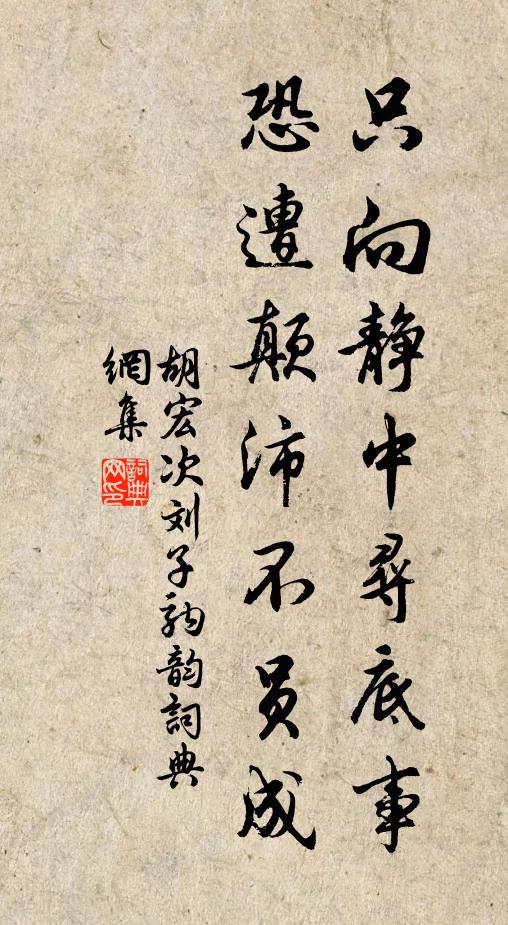 只向静中尋底事
恐遭颠沛不员成
胡宏次刘子驹韵詞典
網集
詞典
网印